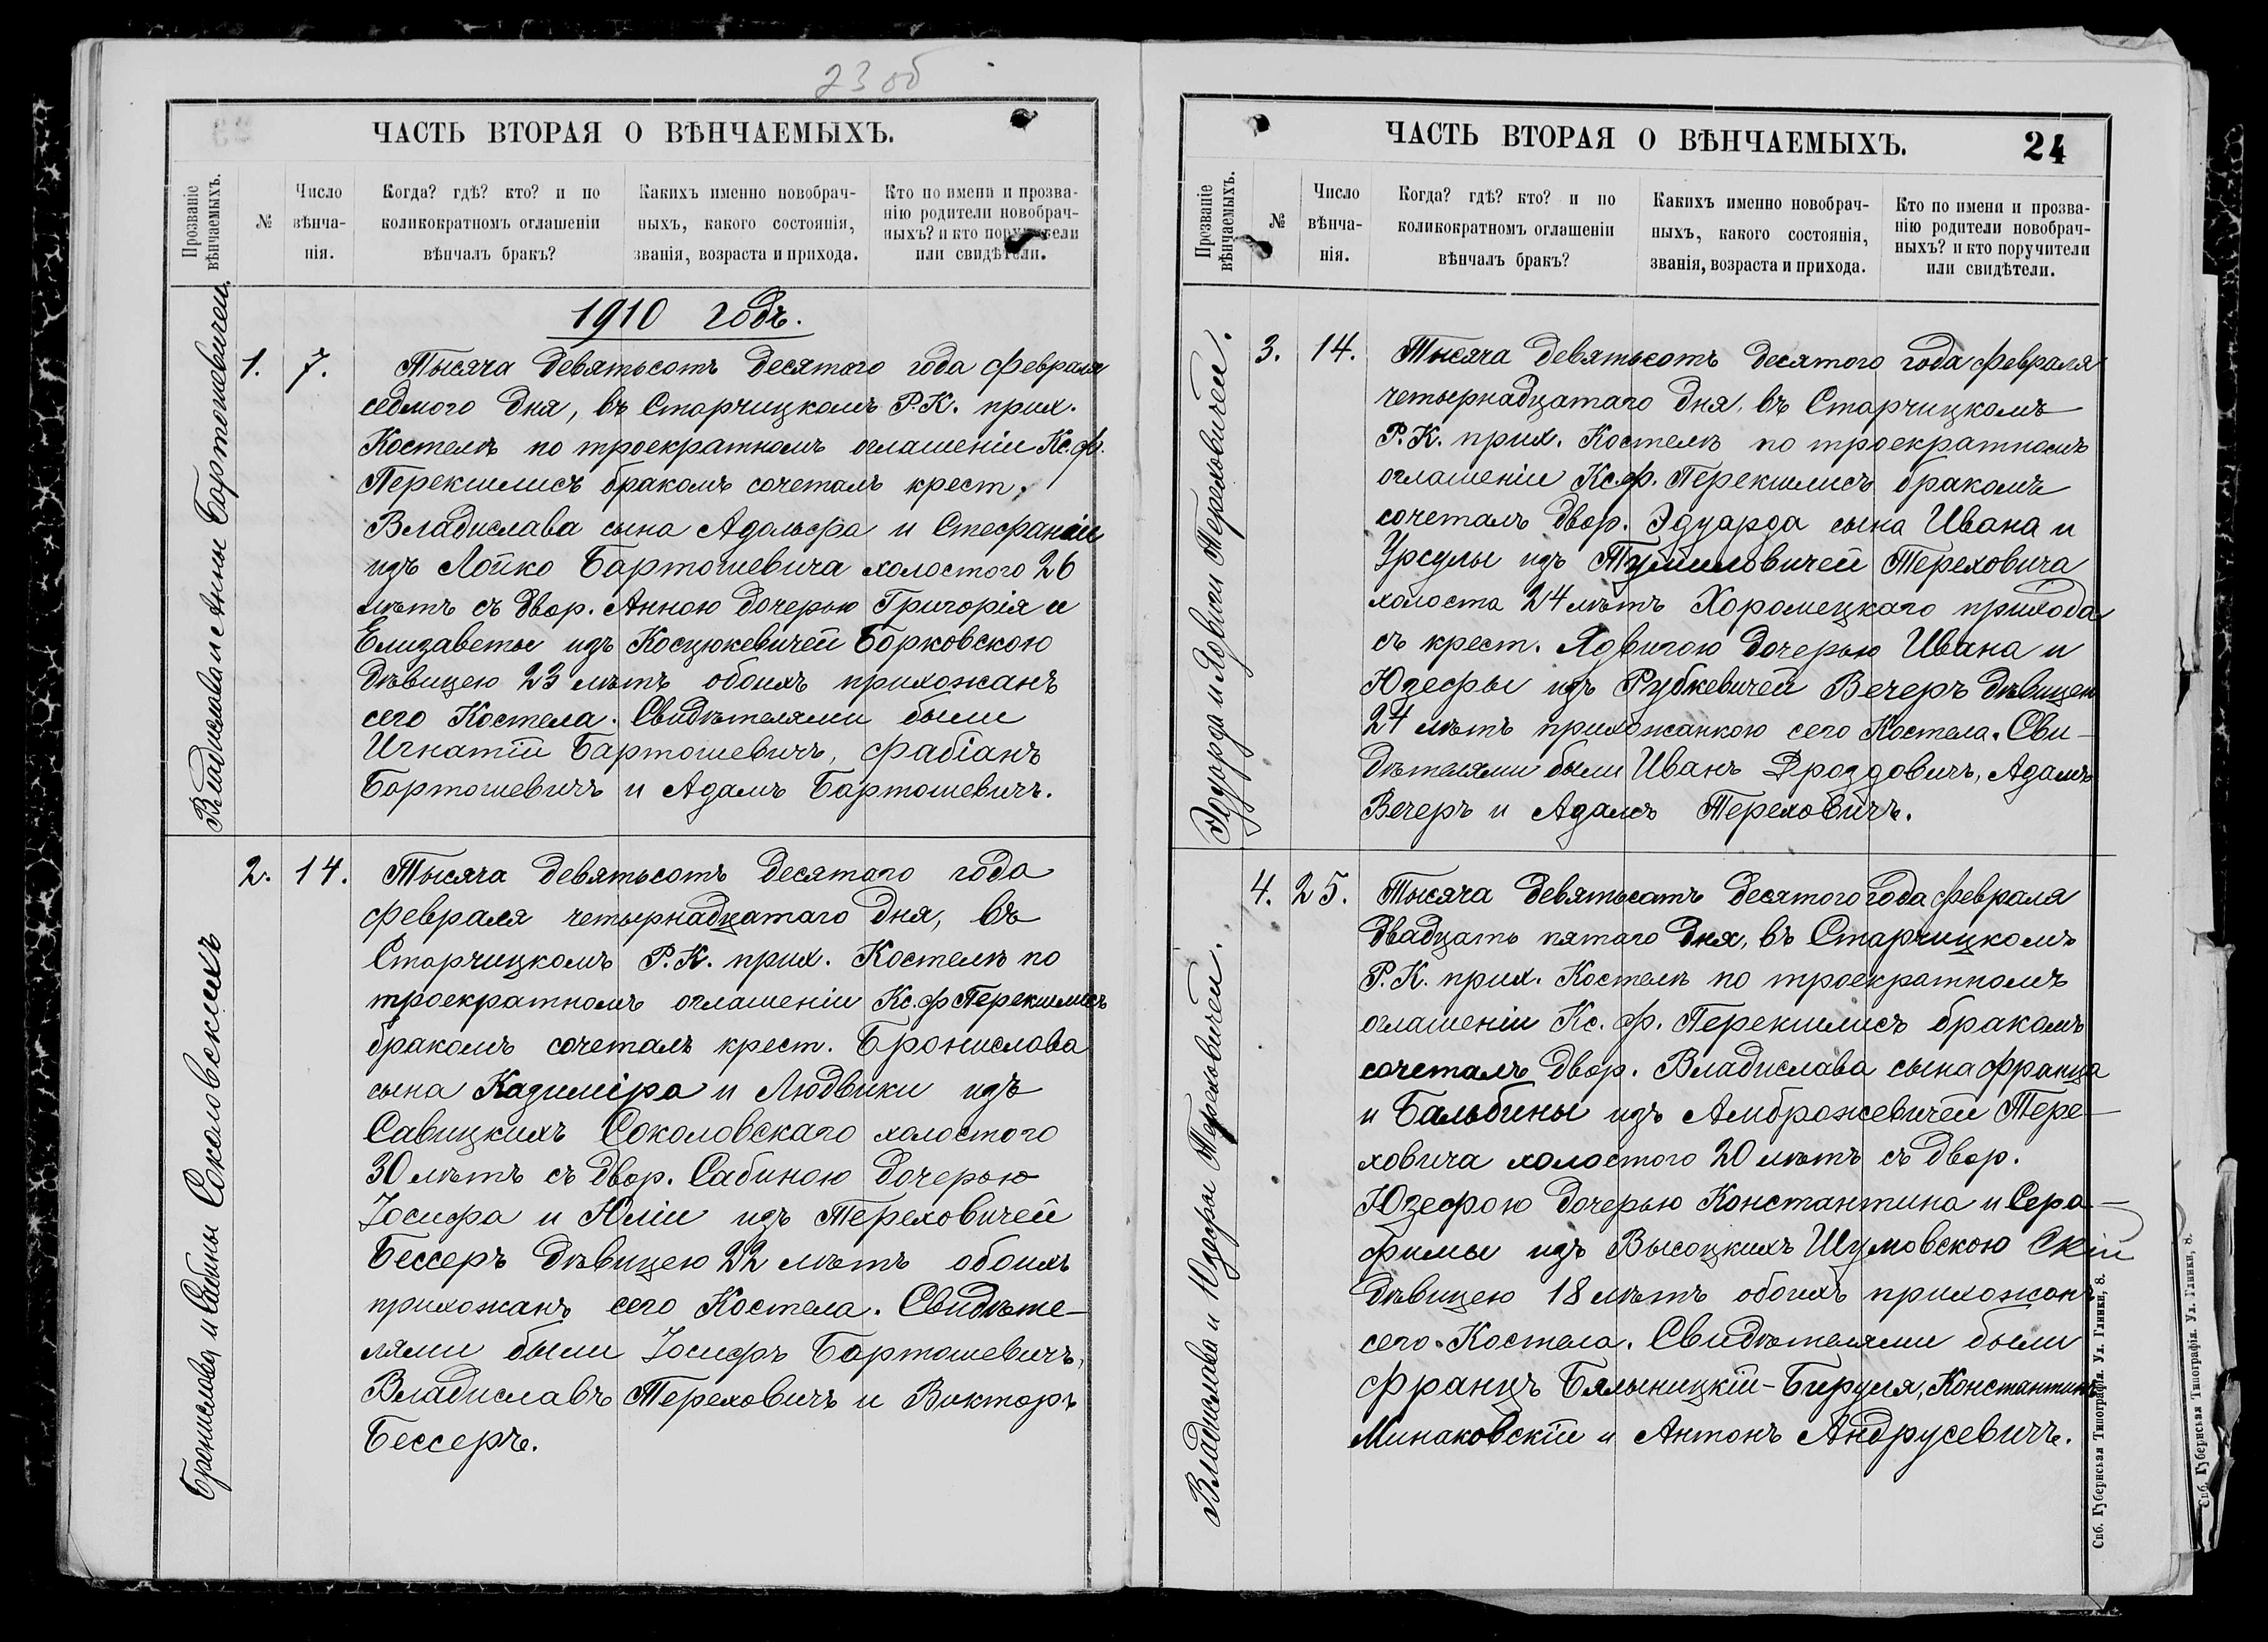 23 об
ЧАСТЬ ВТОРАЯ О ВѢНЧАЕМЫХЪ.
Прозваніе вѣнчаемыхъ.
№
Число вѣнча-нія.
Когда? гдѣ? кто? и по
коликократномъ оглашеніи
вѣнчалъ бракъ?
Какихъ именно новобрач-
ныхъ, какого состоянія,
званія, возраста и прихода.
Кто по имени и прозва-
нію родители новобрач-
ныхъ? и кто поручители
или свидѣтели.
1910 годъ.
Владислава и Анны Бартошевичей.
1. 7.
Тысяча девятьсотъ десятаго года февраля
седмого дня, въ Старчицкомъ Р.К. прих.
Костелѣ по троекратномъ оглашеніи Кс. Ф.
Перекшлисъ бракомъ сочеталъ крест.
Владислава сына Адольфа и Стефаніи
изъ Лойко Бартошевича холостого 26
лѣтъ съ двор. Анною дочерью Григорія и
Елизаветы изъ Косцюкевичей Борковскою
дѣвицею 23 лѣтъ обоихъ прихожанъ
сего Костела. Свидѣтелями были
Игнатій Бартошевичъ, Фабіанъ
Бартошевичъ и Адамъ Бартошевичъ.
Бронислава и Сабины Соколовскихъ
2. 14.
Тысяча девятьсотъ десятаго года
февраля четырнадцатаго дня, въ
Старчицкомъ Р.К. прих. Костелѣ по
троекратномъ оглашеніи Кс. Ф Перекшлисъ
бракомъ сочеталъ крест. Бронислава
сына Казиміра и Людвики изъ
Савицкихъ Соколовскаго холостого
30 лѣтъ съ двор. Сабиною дочерью
Іосифа и Юліи изъ Тереховичей
Бессеръ дѣвицею 22 лѣтъ обоихъ
прихожанъ сего Костела. Свидѣте-
лями были Іосифъ Бартошевичъ,
Владиславъ Тереховичъ и Викторъ
Бессеръ.
ЧАСТЬ ВТОРАЯ О ВѢНЧАЕМЫХЪ.
24
Прозваніе вѣнчаемыхъ.
№
Число вѣнча-нія.
Когда? гдѣ? кто? и по
коликократномъ оглашеніи
вѣнчалъ бракъ?
Какихъ именно новобрач-
ныхъ, какого состоянія,
званія, возраста и прихода.
Кто по имени и прозва-
нію родители новобрач-
ныхъ? и кто поручители
или свидѣтели.
Эдуарда и Ядвиги Тереховичей.
3. 14.
Тысяча девятьсотъ десятаго года февраля
четырнадцатаго дня, въ Старчицкомъ
Р.К. прих. Костелѣ по троекратномъ
оглашеніи Кс. Ф. Перекшлисъ бракомъ
сочеталъ двор. Эдуарда сына Ивана и
Урсулы изъ Тумиловичей Тереховича
холоста 24 лѣтъ Хоромецкаго прихода
съ крест. Ядвигою дочерью Ивана и
Юзефы изъ Рубкевичей Вечеръ дѣвицею
24 лѣтъ прихожанкою сего Костела. Сви-
дѣтелями были Иванъ Дроздовичъ, Адамъ
Вечеръ и Адамъ Тереховичъ.
Владислава и Юзефы Тереховичей.
4. 25.
Тысяча девятьсотъ десятого года февраля
двадцать пятаго дня, въ Старчицкомъ
Р.К. прих. Костелѣ по троекратномъ
оглашеніи Кс. Ф. Перекшлисъ бракомъ
сочеталъ двор. Владислава сына Франца
и Бальбины изъ Амброжевичей Тере-
ховича холостого 20 лѣтъ съ двор.
Юзефою дочерью Константина и Сера-
фимы изъ Высоцкихъ Шумовскою
дѣвицею 18 лѣтъ обоихъ прихожанъ
сего Костела. Свидѣтелями были
Францъ Бялыницкій-Бируля, Константинъ
Минаковскій и Антонъ Андрусевичъ.
Спб. Губернская Типографія. Ул. Глинки, 8.
Спб. Губернская Типографія. Ул. Глинки, 8.